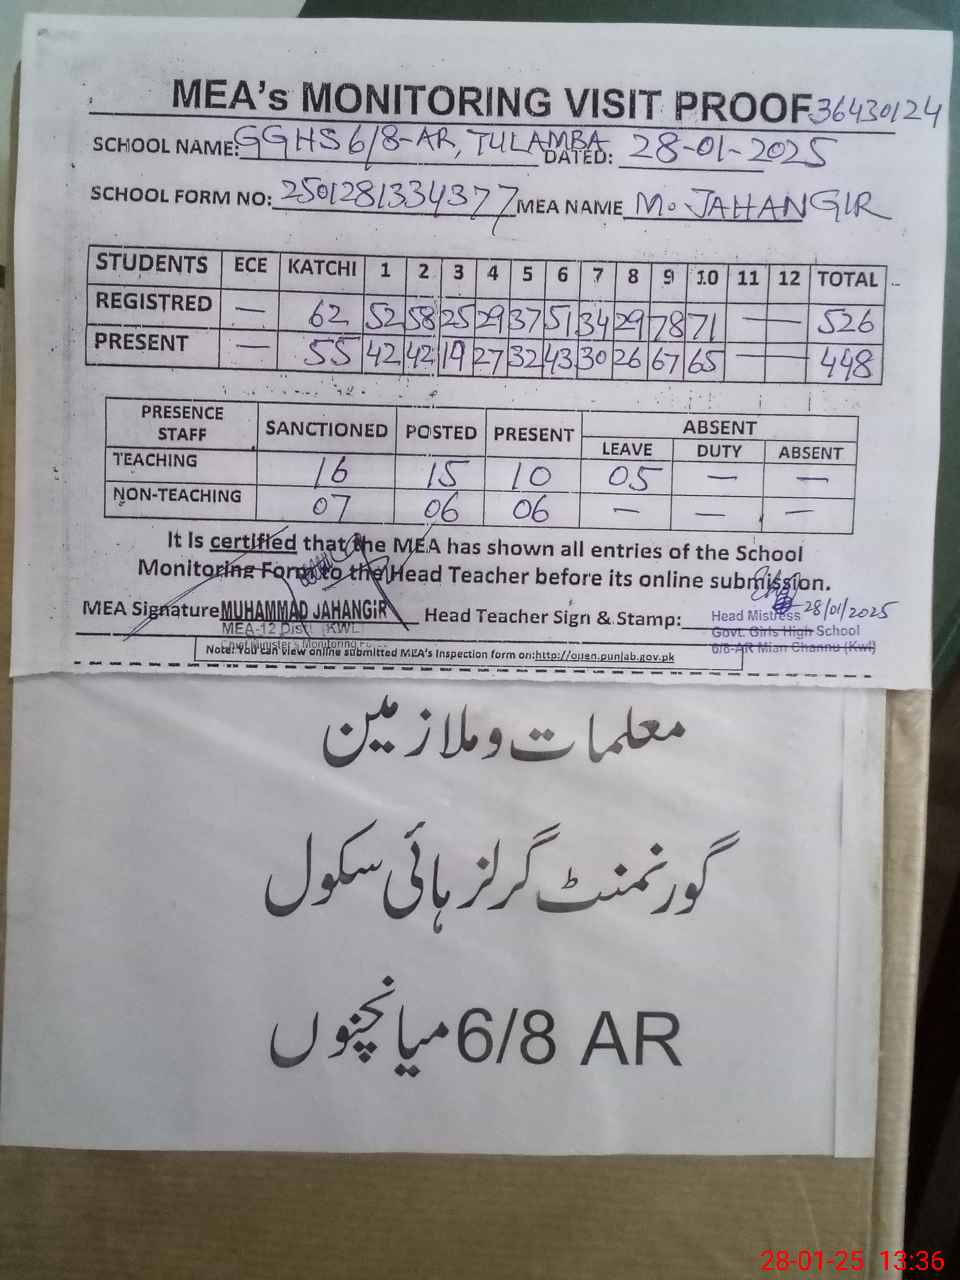 MEA's MONITORING VISIT PROOF 36430124
SCHOOL NAME: GGHS 6/8-AR, TULAMBA DATED: 28-01-2025
SCHOOL FORM NO: 2501281334377 MEA NAME M. JAHANGIR
STUDENTS ECE KATCHI 1 2 3 4 5 6 7 8 9 10 11 12 TOTAL
REGISTRED — 62 52 58 25 29 37 51 34 29 78 71 — — 526
PRESENT — 55 42 42 19 27 32 43 30 26 67 65 — — 448
PRESENCE STAFF SANCTIONED POSTED PRESENT ABSENT
LEAVE DUTY ABSENT
TEACHING 16 15 10 05 — —
NON-TEACHING 07 06 06 — — —
It Is certified that the MEA has shown all entries of the School
Monitoring Form to the Head Teacher before its online submission.
MEA Signature MUHAMMAD JAHANGIR Head Teacher Sign & Stamp: 28/01/2025
MEA-12 Dist. (KWL)
Chief Minister's Monitoring
Head Mistress
Govt. Girls High School
6/8-AR Mian Channu (Kwl)
Note: You can view online submitted MEA's Inspection form on: http://open.punjab.gov.pk
معلمات و ملازمین
گورنمنٹ گرلز ہائی سکول
6/8 AR میانچنوں
28-01-25 13:36